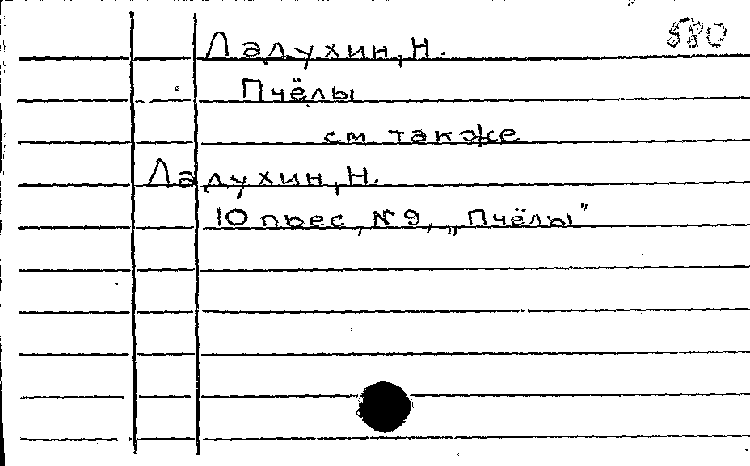 580
Ладухин, Н.
Пчёлы
см также
Ладухин, Н.
10 пьес, № 9, „Пчёлы"